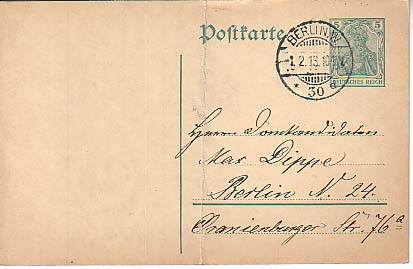 Postkarte
5 5
BERLIN W.
1.2.13.10
* 30 a
DEUTSCHES REICH
Herrn Domkandidaten
Max Dippe
Berlin N. 24.
Oranienburger Str. 76a